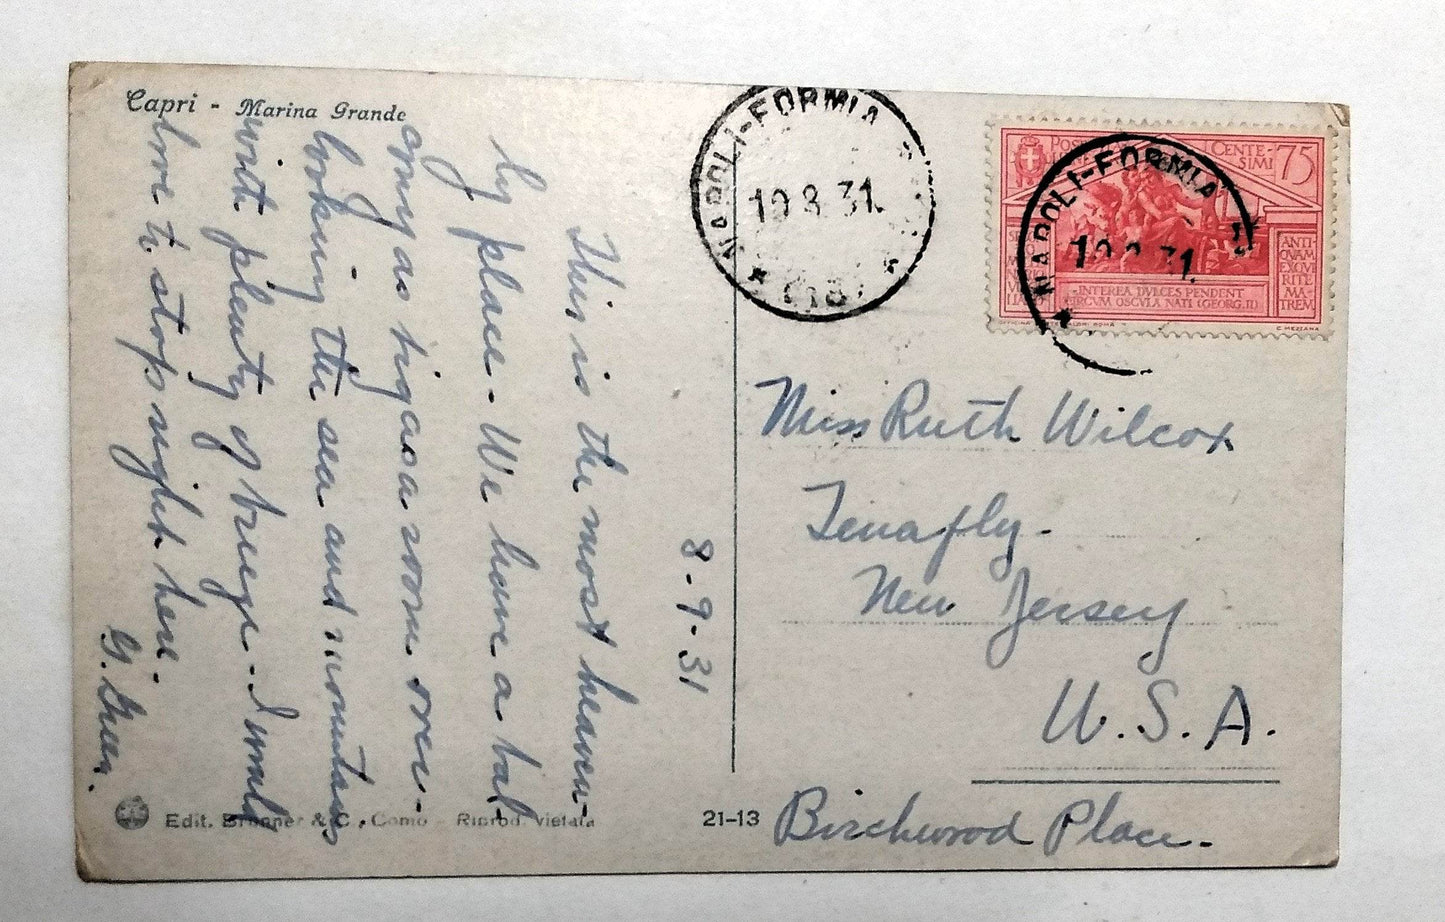 Capri - Marina Grande
This is the most heaven-
ly place - We have a bal-
cony as big as a room over-
looking the sea and mountains
with plenty of breeze - I would
love to stop right here.
G. Green.
8-9-31
NAPOLI-FORMIA
10.8.31.
POSTE
CENTESIMI 75
ANTIQVAM EXQVIRITE MATREM
INTEREA DVLCES PENDENT
CIRCVM OSCVLA NATI (GEORG. II)
C. MEZZANA
NAPOLI-FORMIA
Miss Ruth Wilcox
Tenafly -
New Jersey
U.S.A.
Birchwood Place.
Edit. Brunner & C., Como - Riprod. vietata
21-13